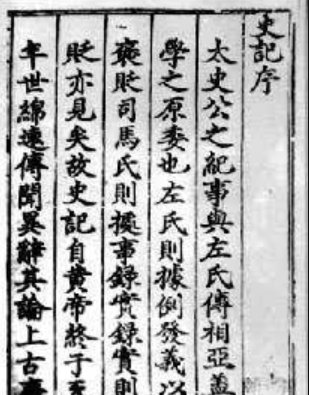 史記序
太史公之紀事與左氏傳相亞蓋
學之原委也左氏則據例發義以
褒貶司馬氏則據事錄實錄實則
貶亦見矣故史記自黃帝終于
年世綿遠傳聞異辭其論上古